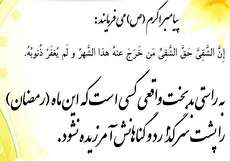 پیامبر اکرم (ص) می فرمایند:
إنَّ الشَّقِیَّ حَقَّ الشَّقِیِّ مَن خَرَجَ عَنهُ هذَا الشَّهرُ وَ لَم یُغفَر ذُنوبُهُ.
به راستی بدبخت واقعی کسی است که این ماه (رمضان)
را پشت سر گذارد و گناهانش آمرزیده نشود.